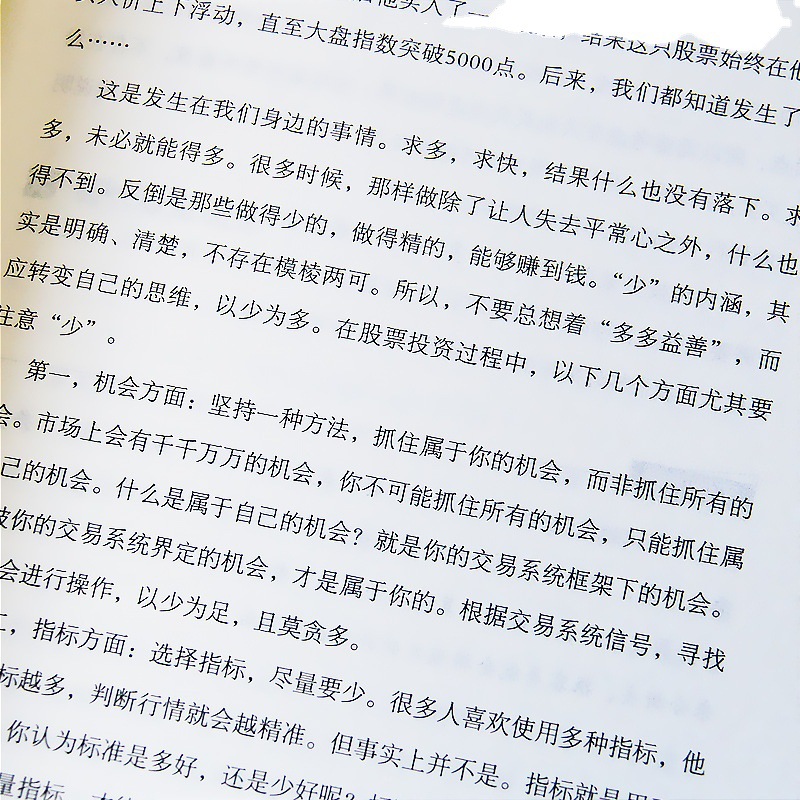 价上下浮动，直至大盘指数突破5000点。后来，我们都知道发生了
么……
这是发生在我们身边的事情。求多，求快，结果什么也没有落下。求
多，未必就能得多。很多时候，那样做除了让人失去平常心之外，什么也
得不到。反倒是那些做得少的，做得精的，能够赚到钱。“少”的内涵，其
实是明确、清楚，不存在模棱两可。所以，不要总想着“多多益善”，而
应转变自己的思维，以少为多。在股票投资过程中，以下几个方面尤其要
注意“少”。
第一，机会方面：坚持一种方法，抓住属于你的机会，而非抓住所有的
会。市场上会有千千万万的机会，你不可能抓住所有的机会，只能抓住属
己的机会。什么是属于自己的机会？就是你的交易系统框架下的机会。
被你的交易系统界定的机会，才是属于你的。根据交易系统信号，寻找
会进行操作，以少为足，且莫贪多。
，指标方面：选择指标，尽量要少。很多人喜欢使用多种指标，他
标越多，判断行情就会越精准。但事实上并不是。指标就是用
你认为标准是多好，还是少好呢？
量指标，